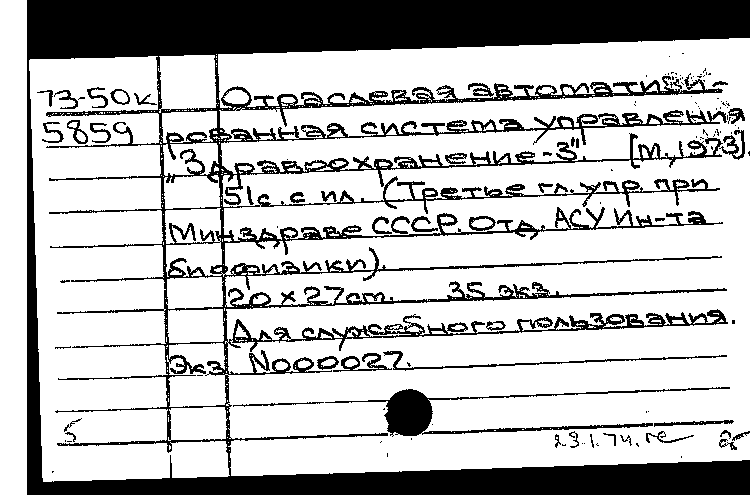 73-50к Отраслевая автоматизи-
5859 рованная система управления
"Здравоохранение-3". [М., 1973].
51с. с ил. (Третье гл. упр. при
Минздраве СССР. Отд. АСУ Ин-та
биофизики).
20 x 27 cm. 35 экз.
Для служебного пользования.
Экз N000027.
5
23.1.74.